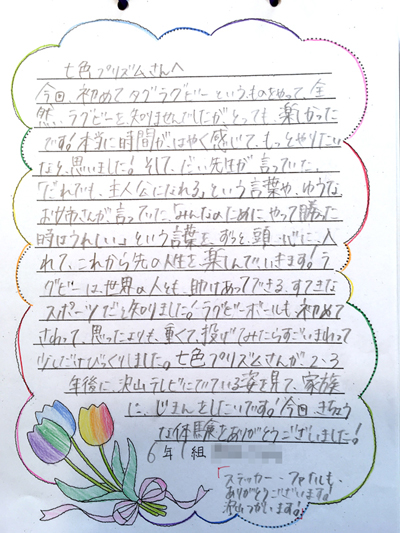 七色プリズムさんへ
今回、初めてタグラグビーというものをやって、全
然、ラグビーを知りませんでしたが、とっても、楽しかった
です!本当に時間が、はやく感じて、もっとやりたい
なと、思いました!そして、だい先生が言っていた、
「だれでも、主人公になれる」という言葉や、ゆうな
お姉さんが言っていた、「みんなのためにやって勝った
時はうれしい」という言葉を、ずっと、頭、心に、入
れて、これから先の人生を楽しんでいきます!ラ
グビーは世界の人とも、助けあってできる、すてきな
スポーツだと知りました!ラグビーボールも、初めて
さわって、思ったよりも、重くて、投げてみたらすごいまわって
少しだけびっくりしました。七色プリズムさんが、2、3
年後に、沢山テレビにでている姿を見て、家族
に、じまんをしたいです!今回、きちょう
な体験をありがとうございました!
6年1組
ステッカー、ファイルも、
ありがとうございます!
沢山つかいます!